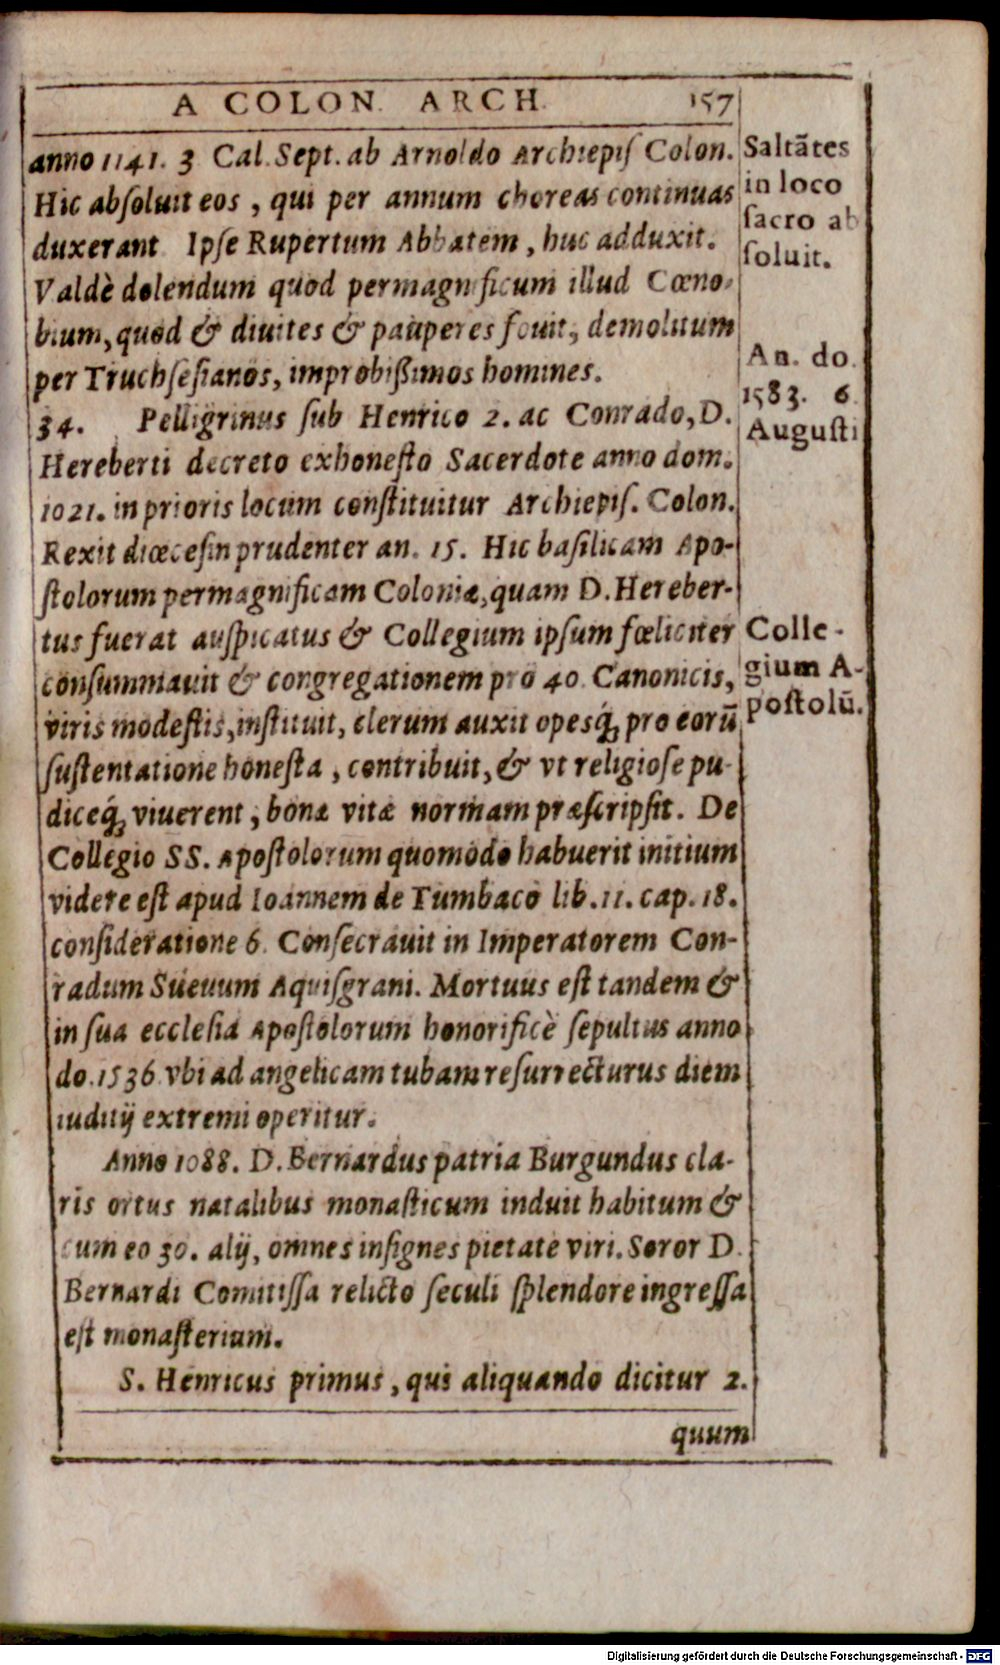 A COLON. ARCH. 157
anno 1141. 3 Cal. Sept. ab Arnoldo Archiepiſ Colon.
Hic abſoluit eos, qui per annum choreas continuas
duxerant Ipſe Rupertum Abbatem, huc adduxit.
Valdè dolendum quod permagnificum illud Cœno-
bium, quod & diuites & pauperes fouit, demolitum
per Truchſeſianos, improbißimos homines.
34. Pelligrinus ſub Henrico 2. ac Conrado, D.
Hereberti decreto exhoneſto Sacerdote anno dom.
1021. in prioris locum conſtituitur Archiepiſ. Colon.
Rexit diœceſin prudenter an. 15. Hic baſilicam Apo-
ſtolorum permagnificam Coloniæ, quam D. Hereber-
tus fuerat auſpicatus & Collegium ipſum fœliciter
conſummauit & congregationem pro 40. Canonicis,
viris modeſtis, inſtituit, clerum auxit opesq́, pro eorū
ſuſtentatione honeſta, contribuit, & vt religioſe pu-
diceq́, viuerent, bonæ vitæ normam præſcripſit. De
Collegio SS. Apoſtolorum quomodo habuerit initium
videre eſt apud Ioannem de Tumbaco lib. 11. cap. 18.
conſideratione 6. Conſecrauit in Imperatorem Con-
radum Sueuum Aquiſgrani. Mortuus eſt tandem &
in ſua eccleſia Apoſtolorum honorificè ſepultus anno
do. 1536. vbi ad angelicam tubam reſurrecturus diem
iuditij extremi operitur.
Anno 1088. D. Bernardus patria Burgundus cla-
ris ortus natalibus monaſticum induit habitum &
cum eo 30. alij, omnes inſignes pietate viri. Soror D.
Bernardi Comitiſſa relicto ſeculi ſplendore ingreſſa
eſt monaſterium.
S. Henricus primus, qui aliquando dicitur 2.
quum
Saltātes
in loco
ſacro ab
ſoluit.
An. do.
1583. 6.
Auguſti
Colle-
gium A-
poſtolū.
Digitalisierung gefördert durch die Deutsche Forschungsgemeinschaft - DFG